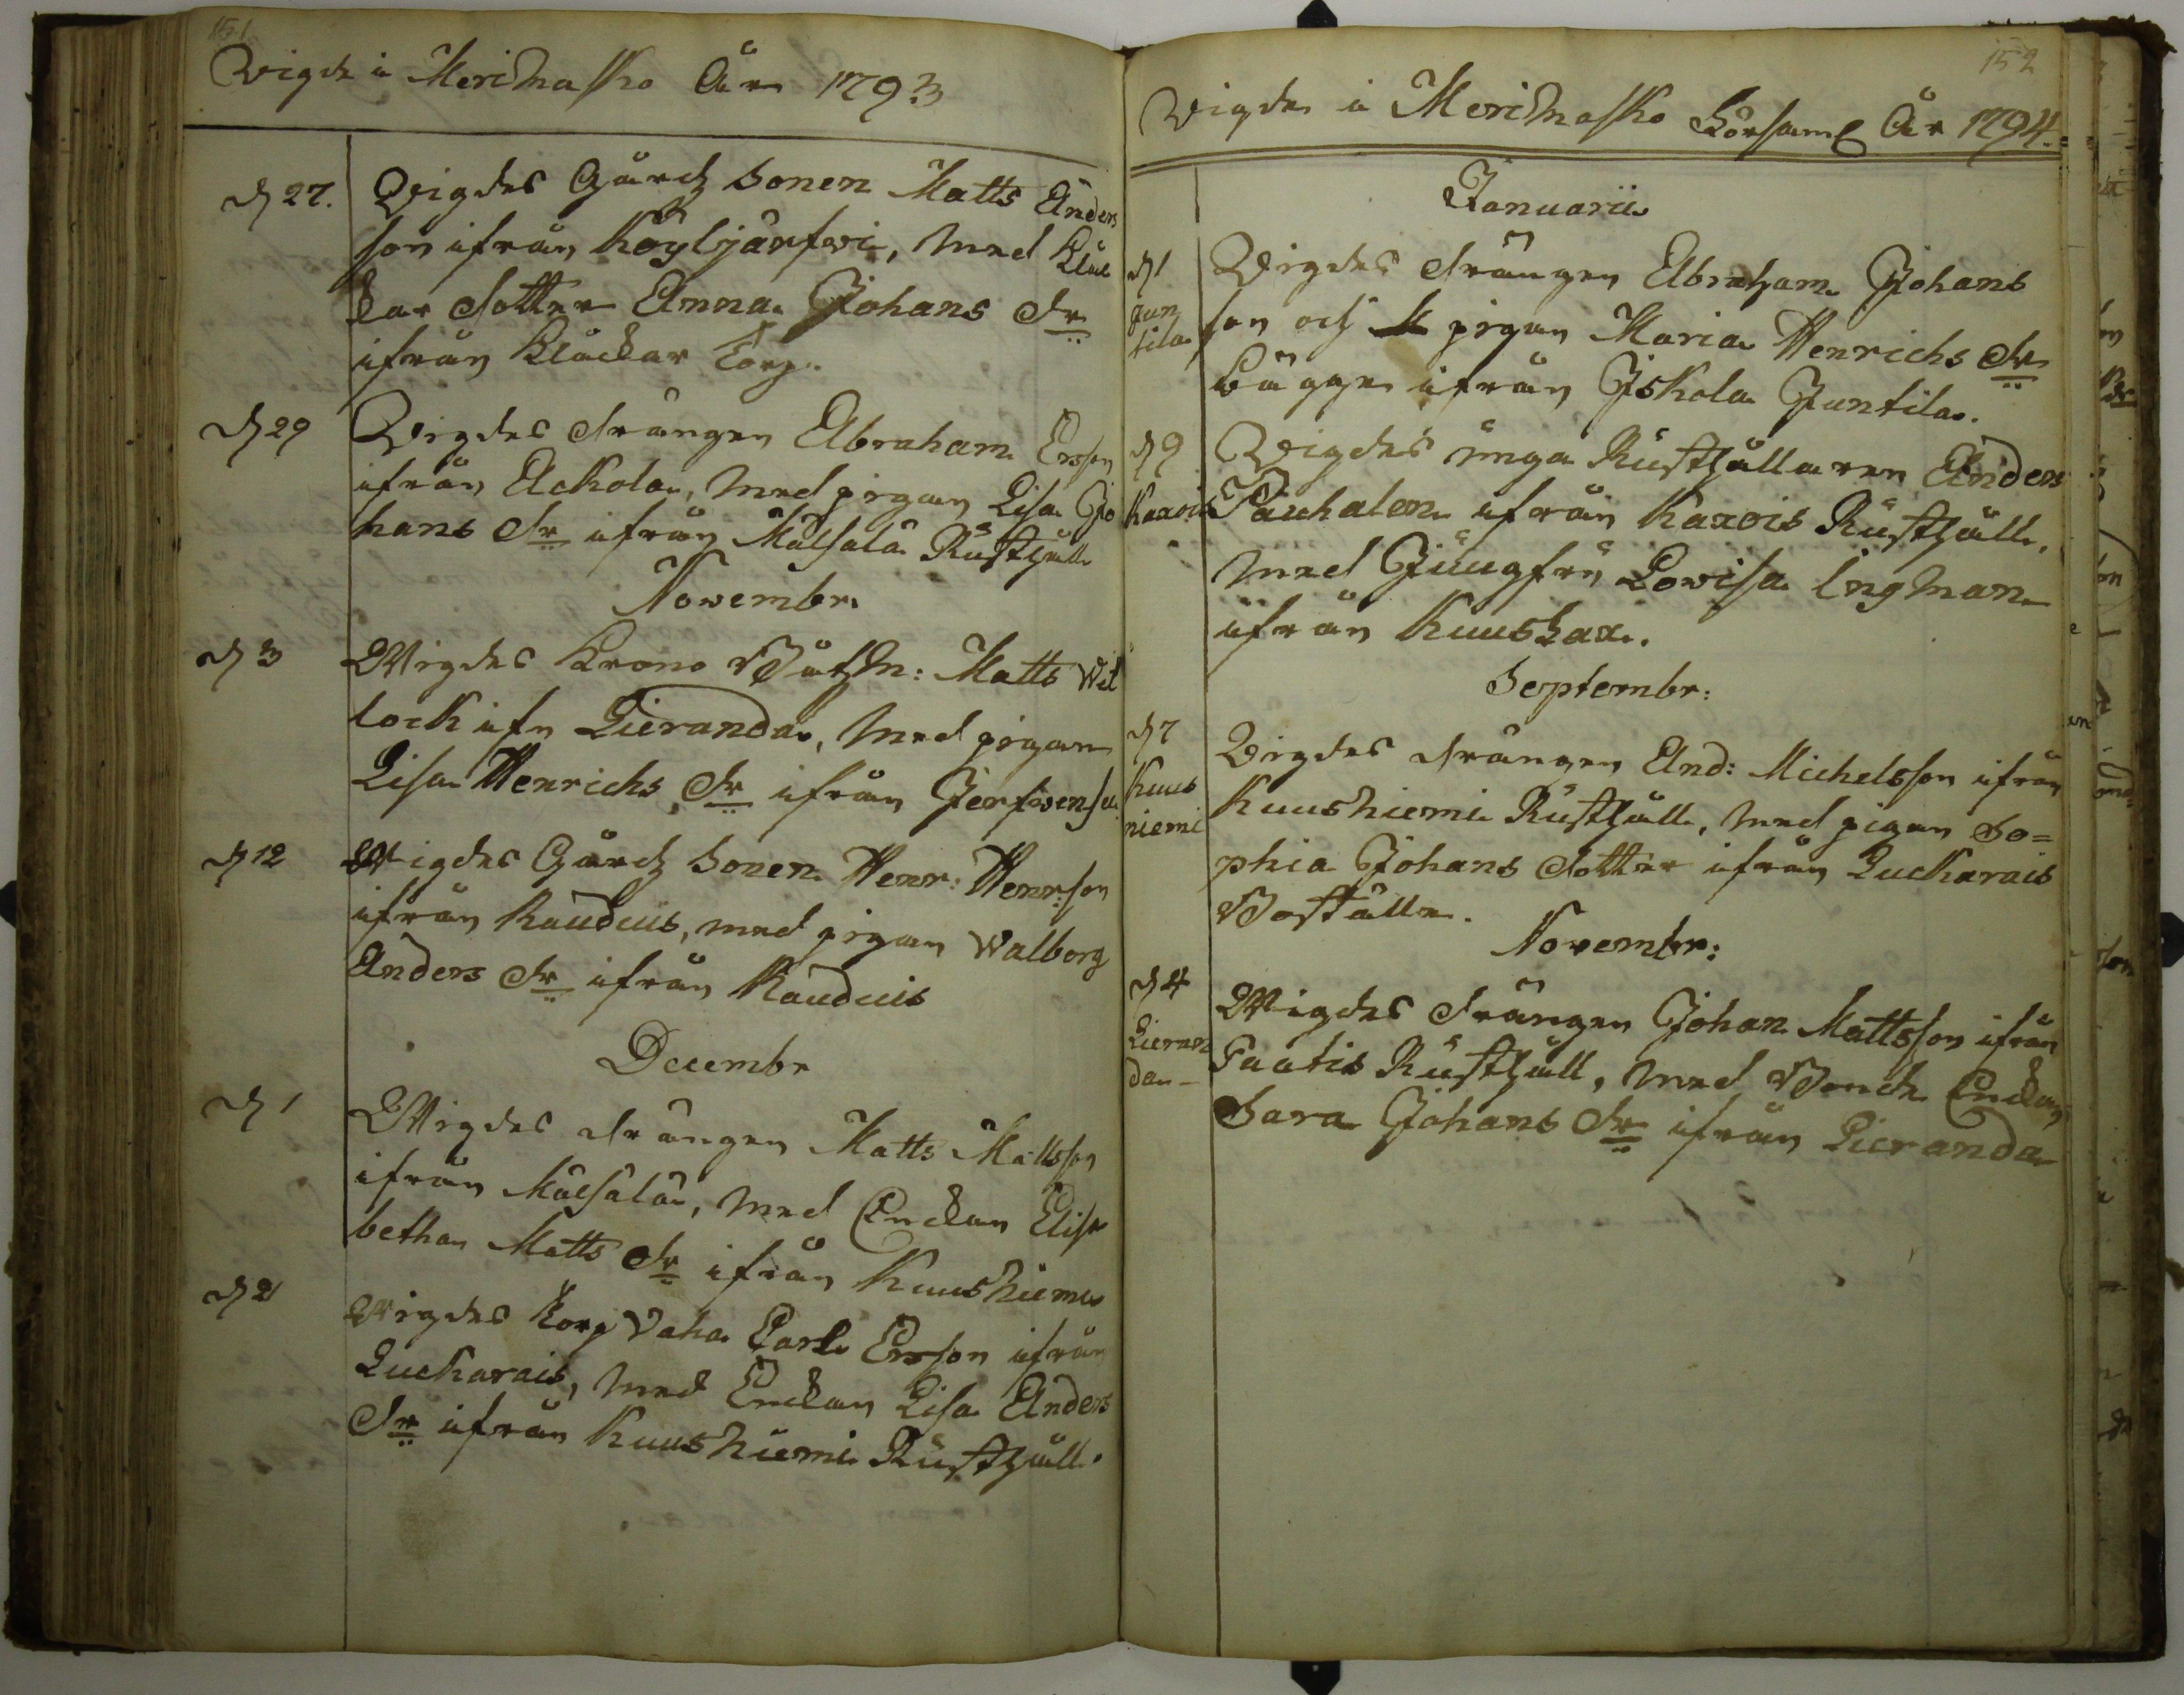 151
Vigde i Merimasko År 1793
d 27. Vigdes Gårds Sonen Matts Anders
son ifrån Köyljärfwi, med Kläc
kar dotter Anna Johans dr
ifrån Kläckar Torp.
d 29 Vigdes drängen Abraham Ersson
ifrån Ackola, med pigan Lisa Jo
hans dr ifrån Målsala Rusthåll
Novembr.
d 3 Vigdes Krono Båtzm: Matts Wil
lock ifr Lieranda, med pigan
Lisa Henrichs dr ifrån Jerfwensu
d 12 Vigdes Gårds Sonen Henr: Henr:son
ifrån Rauduis, med pigan Walborg
Anders dr ifrån Rauduis
Decembr
d 1 Vigdes drängen Matts Mattsson
ifrån Målsala, med Enckan Elisa
betha Matts dr ifrån Kuushiemi
d 21 Vigdes Torp Carl Ersson ifrån
Luckarais, med Enckan Lisa Anders
dr ifrån Kuushiemi Rusthåll.
152
Vigde i Merimasko Församl År 1794.
Januarii
d 1 Vigdes drängen Abraham Johans
Jun
tila
son och pigan Maria Henrichs dr
bägge ifrån Iskola Juntila.
d 9 Vigdes unga Rusthållaren Anders
Kaxois Pauhalen ifrån Kaxois Rusthåll,
med Jungfru Lowisa Ingman
ifrån Kuuskax.
Septembr:
d 7 Vigdes drängen And: Michelsson ifrån
Kuus
niemi
Kuushiemi Rusthåll, med pigan So=
phia Johans dotter ifrån Luckarais
Boställe.
Novembr:
d 4 Vigdes drängen Johan Mattsson ifrån
Lieran
da
Faatis Rusthåll, med Bonde Enckan
Sara Johans dr ifrån Lieranda